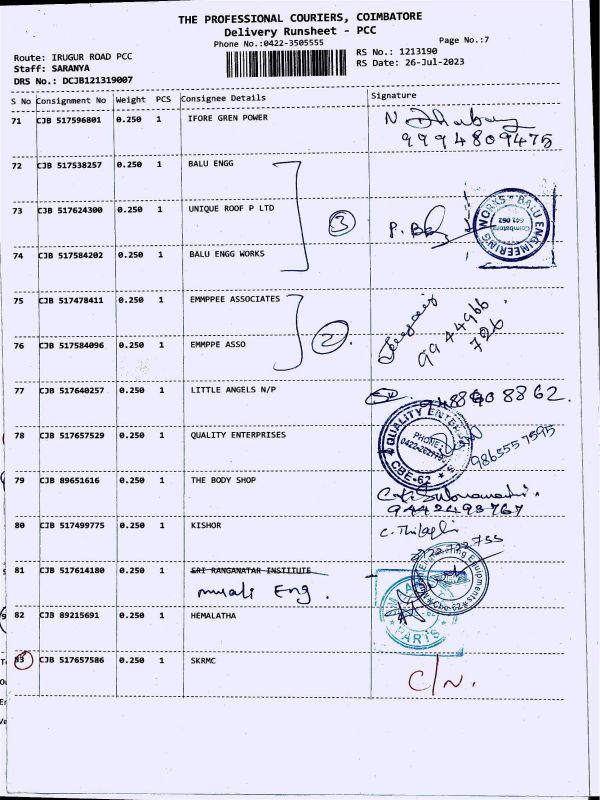 THE PROFESSIONAL COURIERS, COIMBATORE
Delivery Runsheet - PCC
Phone No.:0422-3505555
Page No.:7
Route: IRUGUR ROAD PCC
RS No.: 1213190
Staff: SARANYA
RS Date: 26-Jul-2023
DRS No.: DCJB121319007
S No Consignment No Weight PCS Consignee Details Signature
71 CJB 517596801 0.250 1 IFORE GREN POWER
9994809475
72 CJB 517538257 0.250 1 BALU ENGG
73 CJB 517624300 0.250 1 UNIQUE ROOF P LTD
3
BALU ENGINEERING WORKS
Coimbatore
641 062
74 CJB 517584202 0.250 1 BALU ENGG WORKS
75 CJB 517478411 0.250 1 EMMPPEE ASSOCIATES
2.
9944966
726
76 CJB 517584096 0.250 1 EMMPPE ASSO
77 CJB 517640257 0.250 1 LITTLE ANGELS N/P
78 CJB 517657529 0.250 1 QUALITY ENTERPRISES
QUALITY ENTER
PHONE:
CBE-62
9865557595
79 CJB 89651616 0.250 1 THE BODY SHOP
9442493767
80 CJB 517499775 0.250 1 KISHOR
81 CJB 517614180 0.250 1 SRI RANGANATAR INSTITUTE
murali Eng.
Cbe-62
82 CJB 89215691 0.250 1 HEMALATHA
PARTS
83 CJB 517657586 0.250 1 SKRMC
C/N.